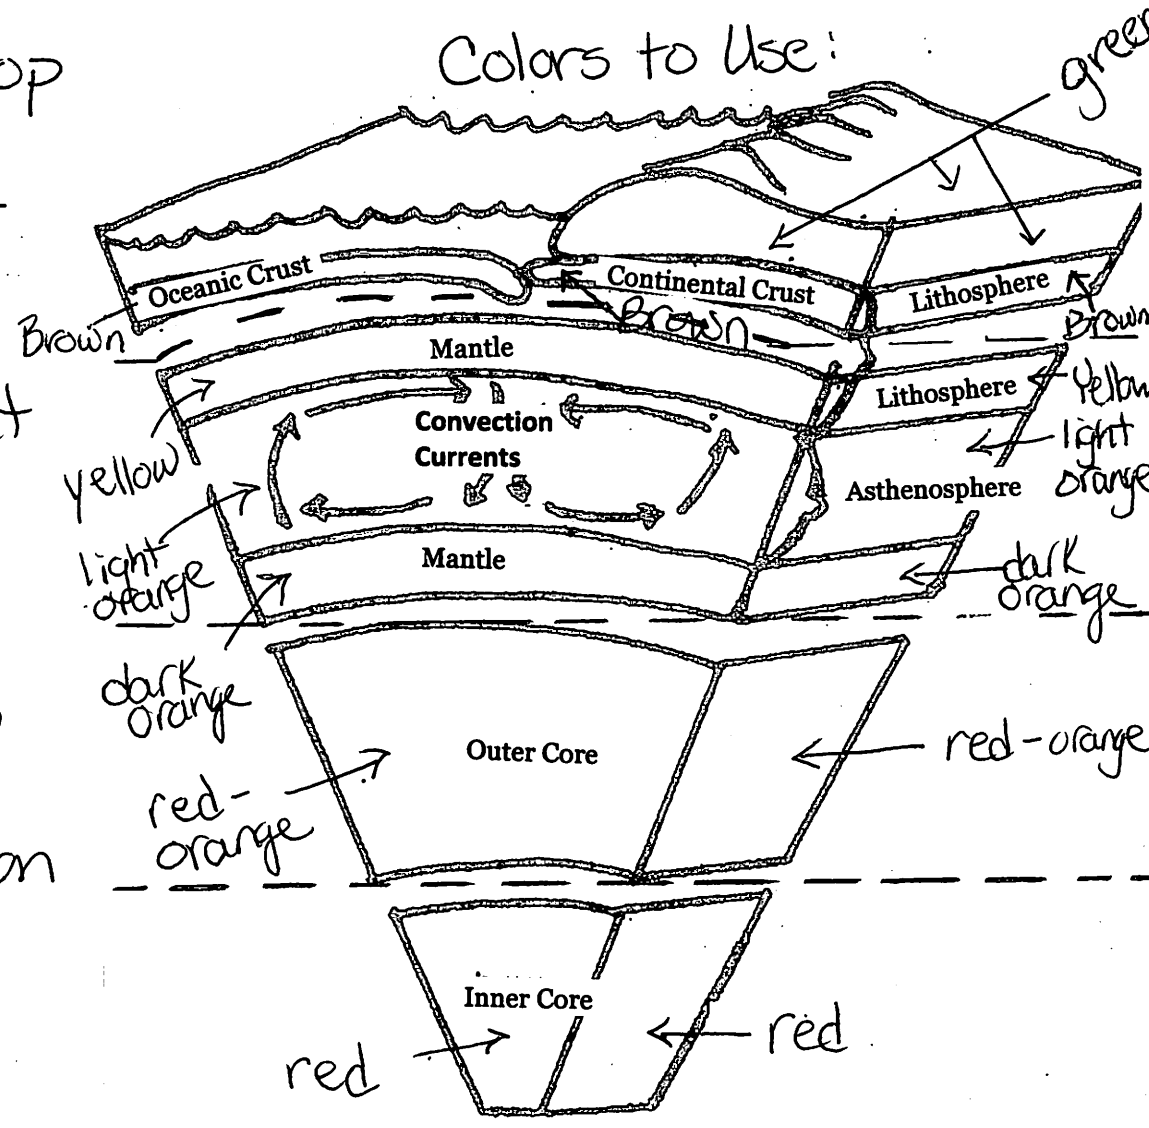 op
Colors to Use:
green
Oceanic Crust
Continental Crust
Lithosphere
Brown
Brown
Brown
Mantle
Lithosphere
Yellow
t
Convection
Currents
light
orange
yellow
Asthenosphere
light
orange
Mantle
dark
orange
dark
orange
Outer Core
red-orange
red-
orange
on
Inner Core
red
red